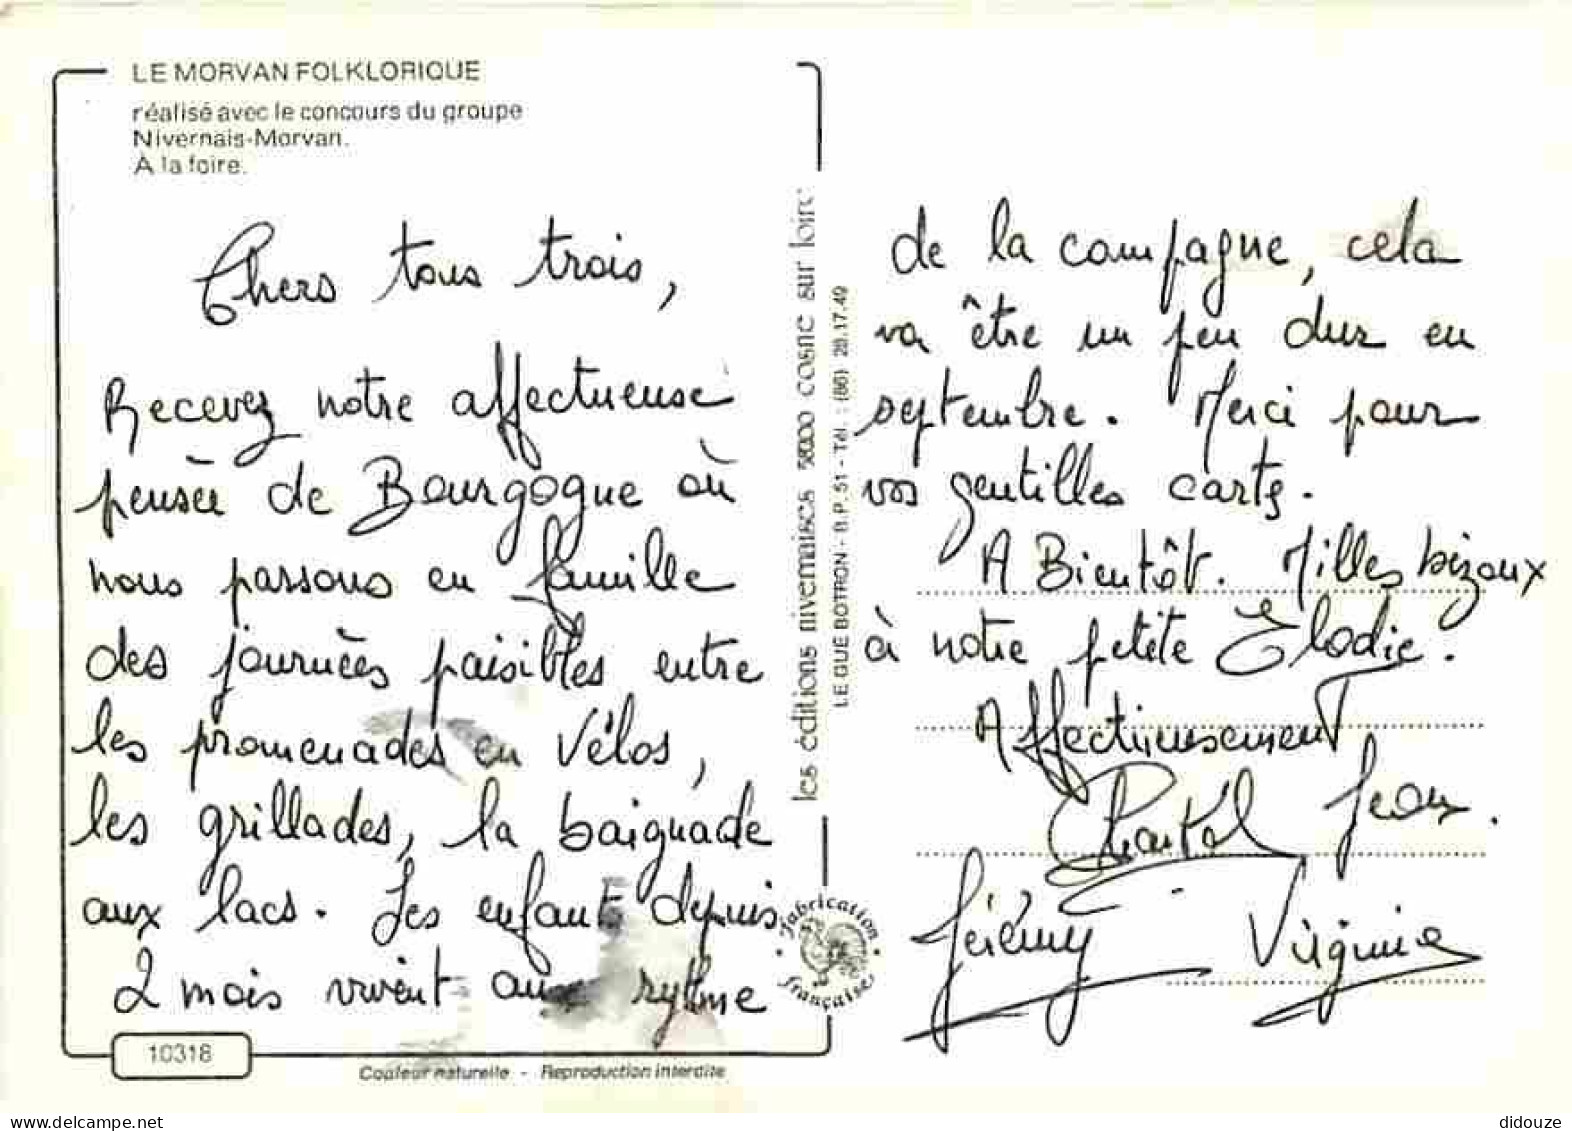 LE MORVAN FOLKLORIQUE
réalisé avec le concours du groupe
Nivernais-Morvan.
À la foire.
Chers tous trois,
Recevez notre affectueuse
pensée de Bourgogne où
nous passons en famille
des journées paisibles entre
les promenades en Vélos,
les grillades, la baignade
aux lacs. Les enfants depuis
2 mois vivent aux rytme
10318
Couleur naturelle - Reproduction interdite
les éditions nivernaises 58200 cosne sur loire
LE GUE BOTRON - B.P. 51 - Tél. : (86) 28.17.49
Fabrication
française
de la campagne, cela
va être un peu dur en
septembre. Merci pour
vos gentilles cartes.
A Bientôt. Milles bizoux
à notre petite Elodie.
Affectueusement
Chantal Jean.
Jérémy Virginie
didouze